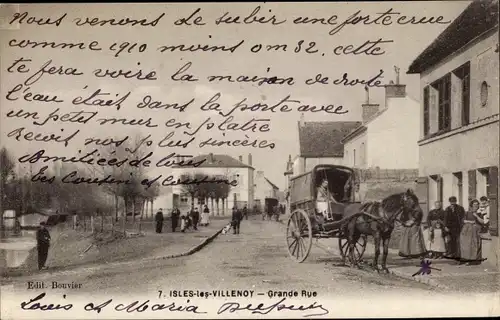 Nous venons de subir une forte crue
comme 1910 moins 0m32. cette
te fera voire la maison de droite
l'eau était dans la porte avec
un petit mur en plâtre
Reçoit nos plus sincères
Amitiées de tous
tes Cousin et Cousine
Edit. Bouvier
7. ISLES-les-VILLENOY — Grande Rue
Louis et Maria